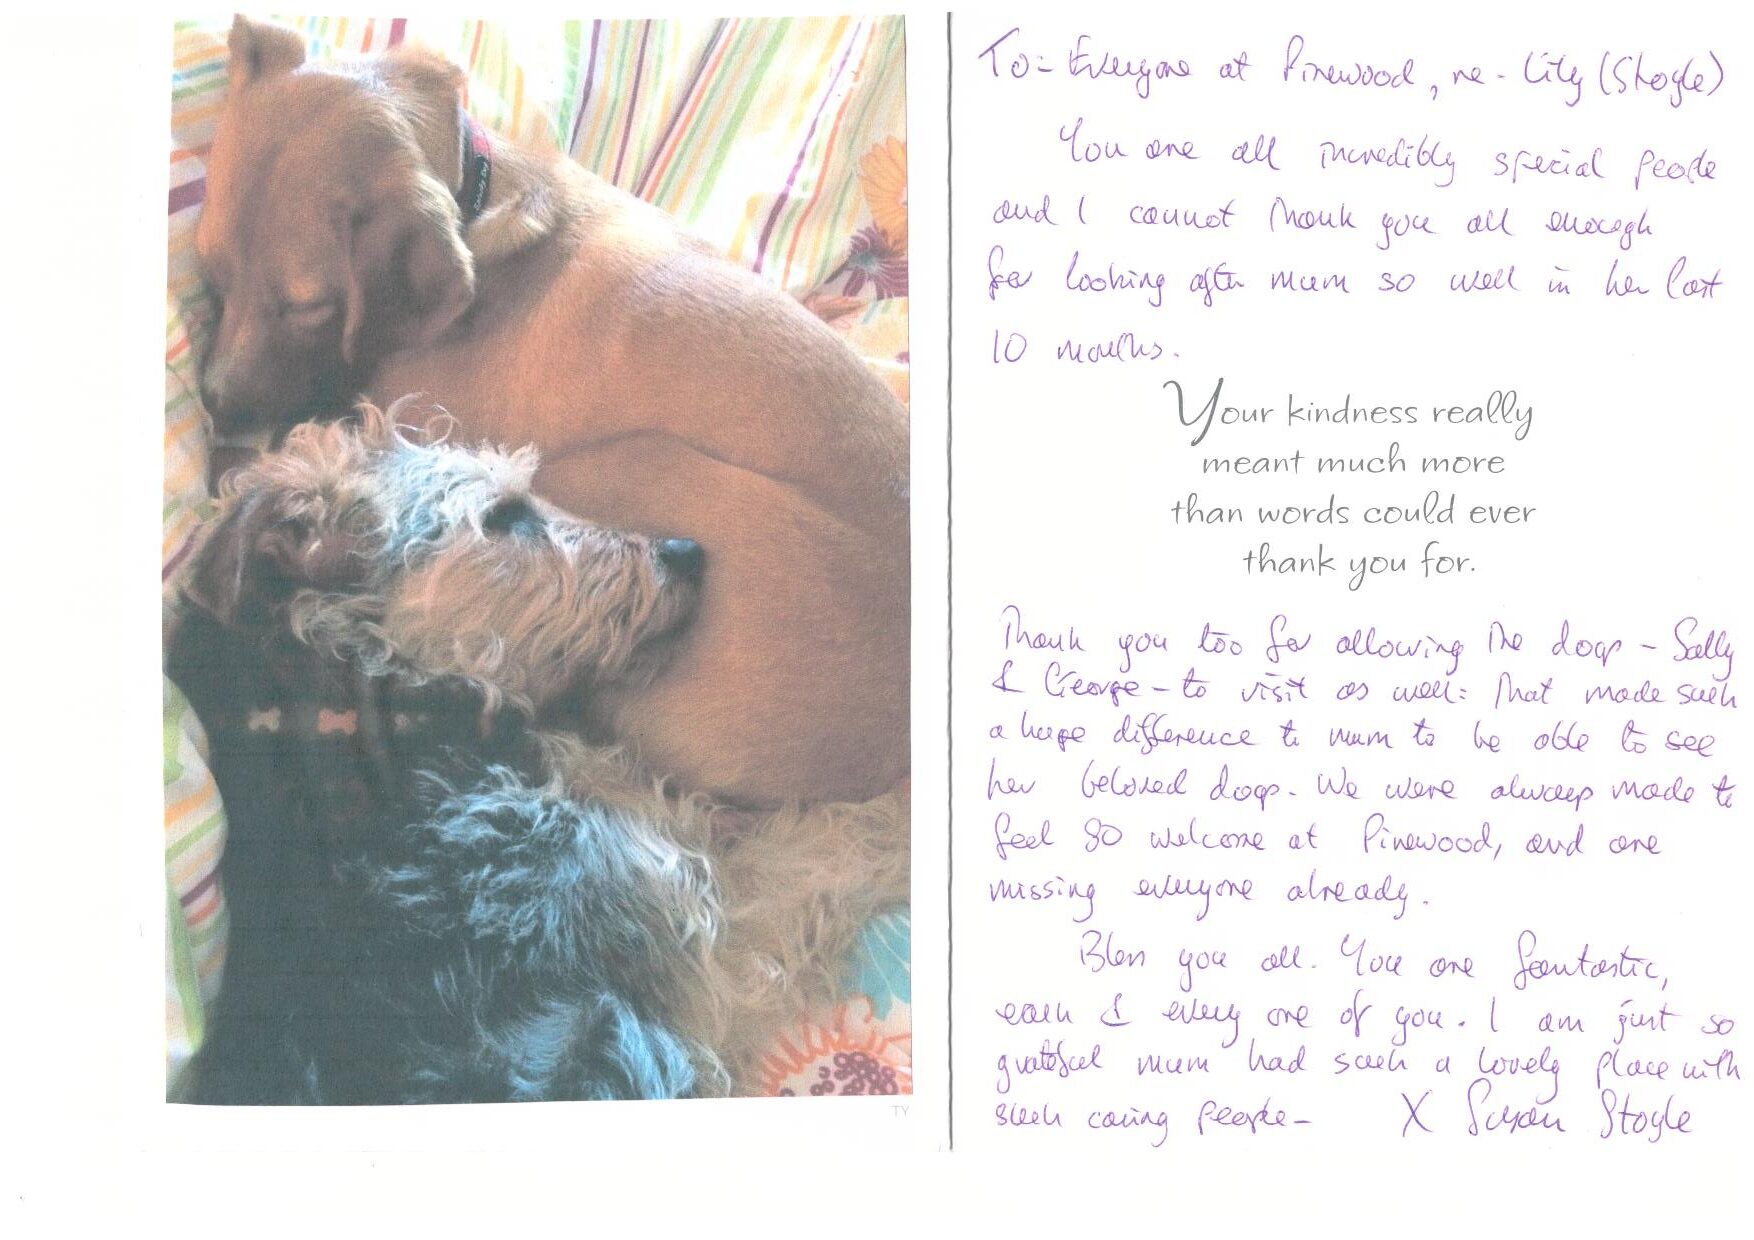 To:- Everyone at Pinewood, re - Lily (Stoyle)
You are all incredibly special people
and I cannot thank you all enough
for looking after mum so well in her last
10 months.
Your kindness really
meant much more
than words could ever
thank you for.
Thank you too for allowing the dogs - Sally
& George - to visit as well: that made such
a huge difference to mum to be able to see
her beloved dogs. We were always made to
feel so welcome at Pinewood, and are
missing everyone already.
Bless you all. You are fantastic,
each & every one of you. I am just so
grateful mum had such a lovely place with
such caring people -
X Susan Stoyle
TY